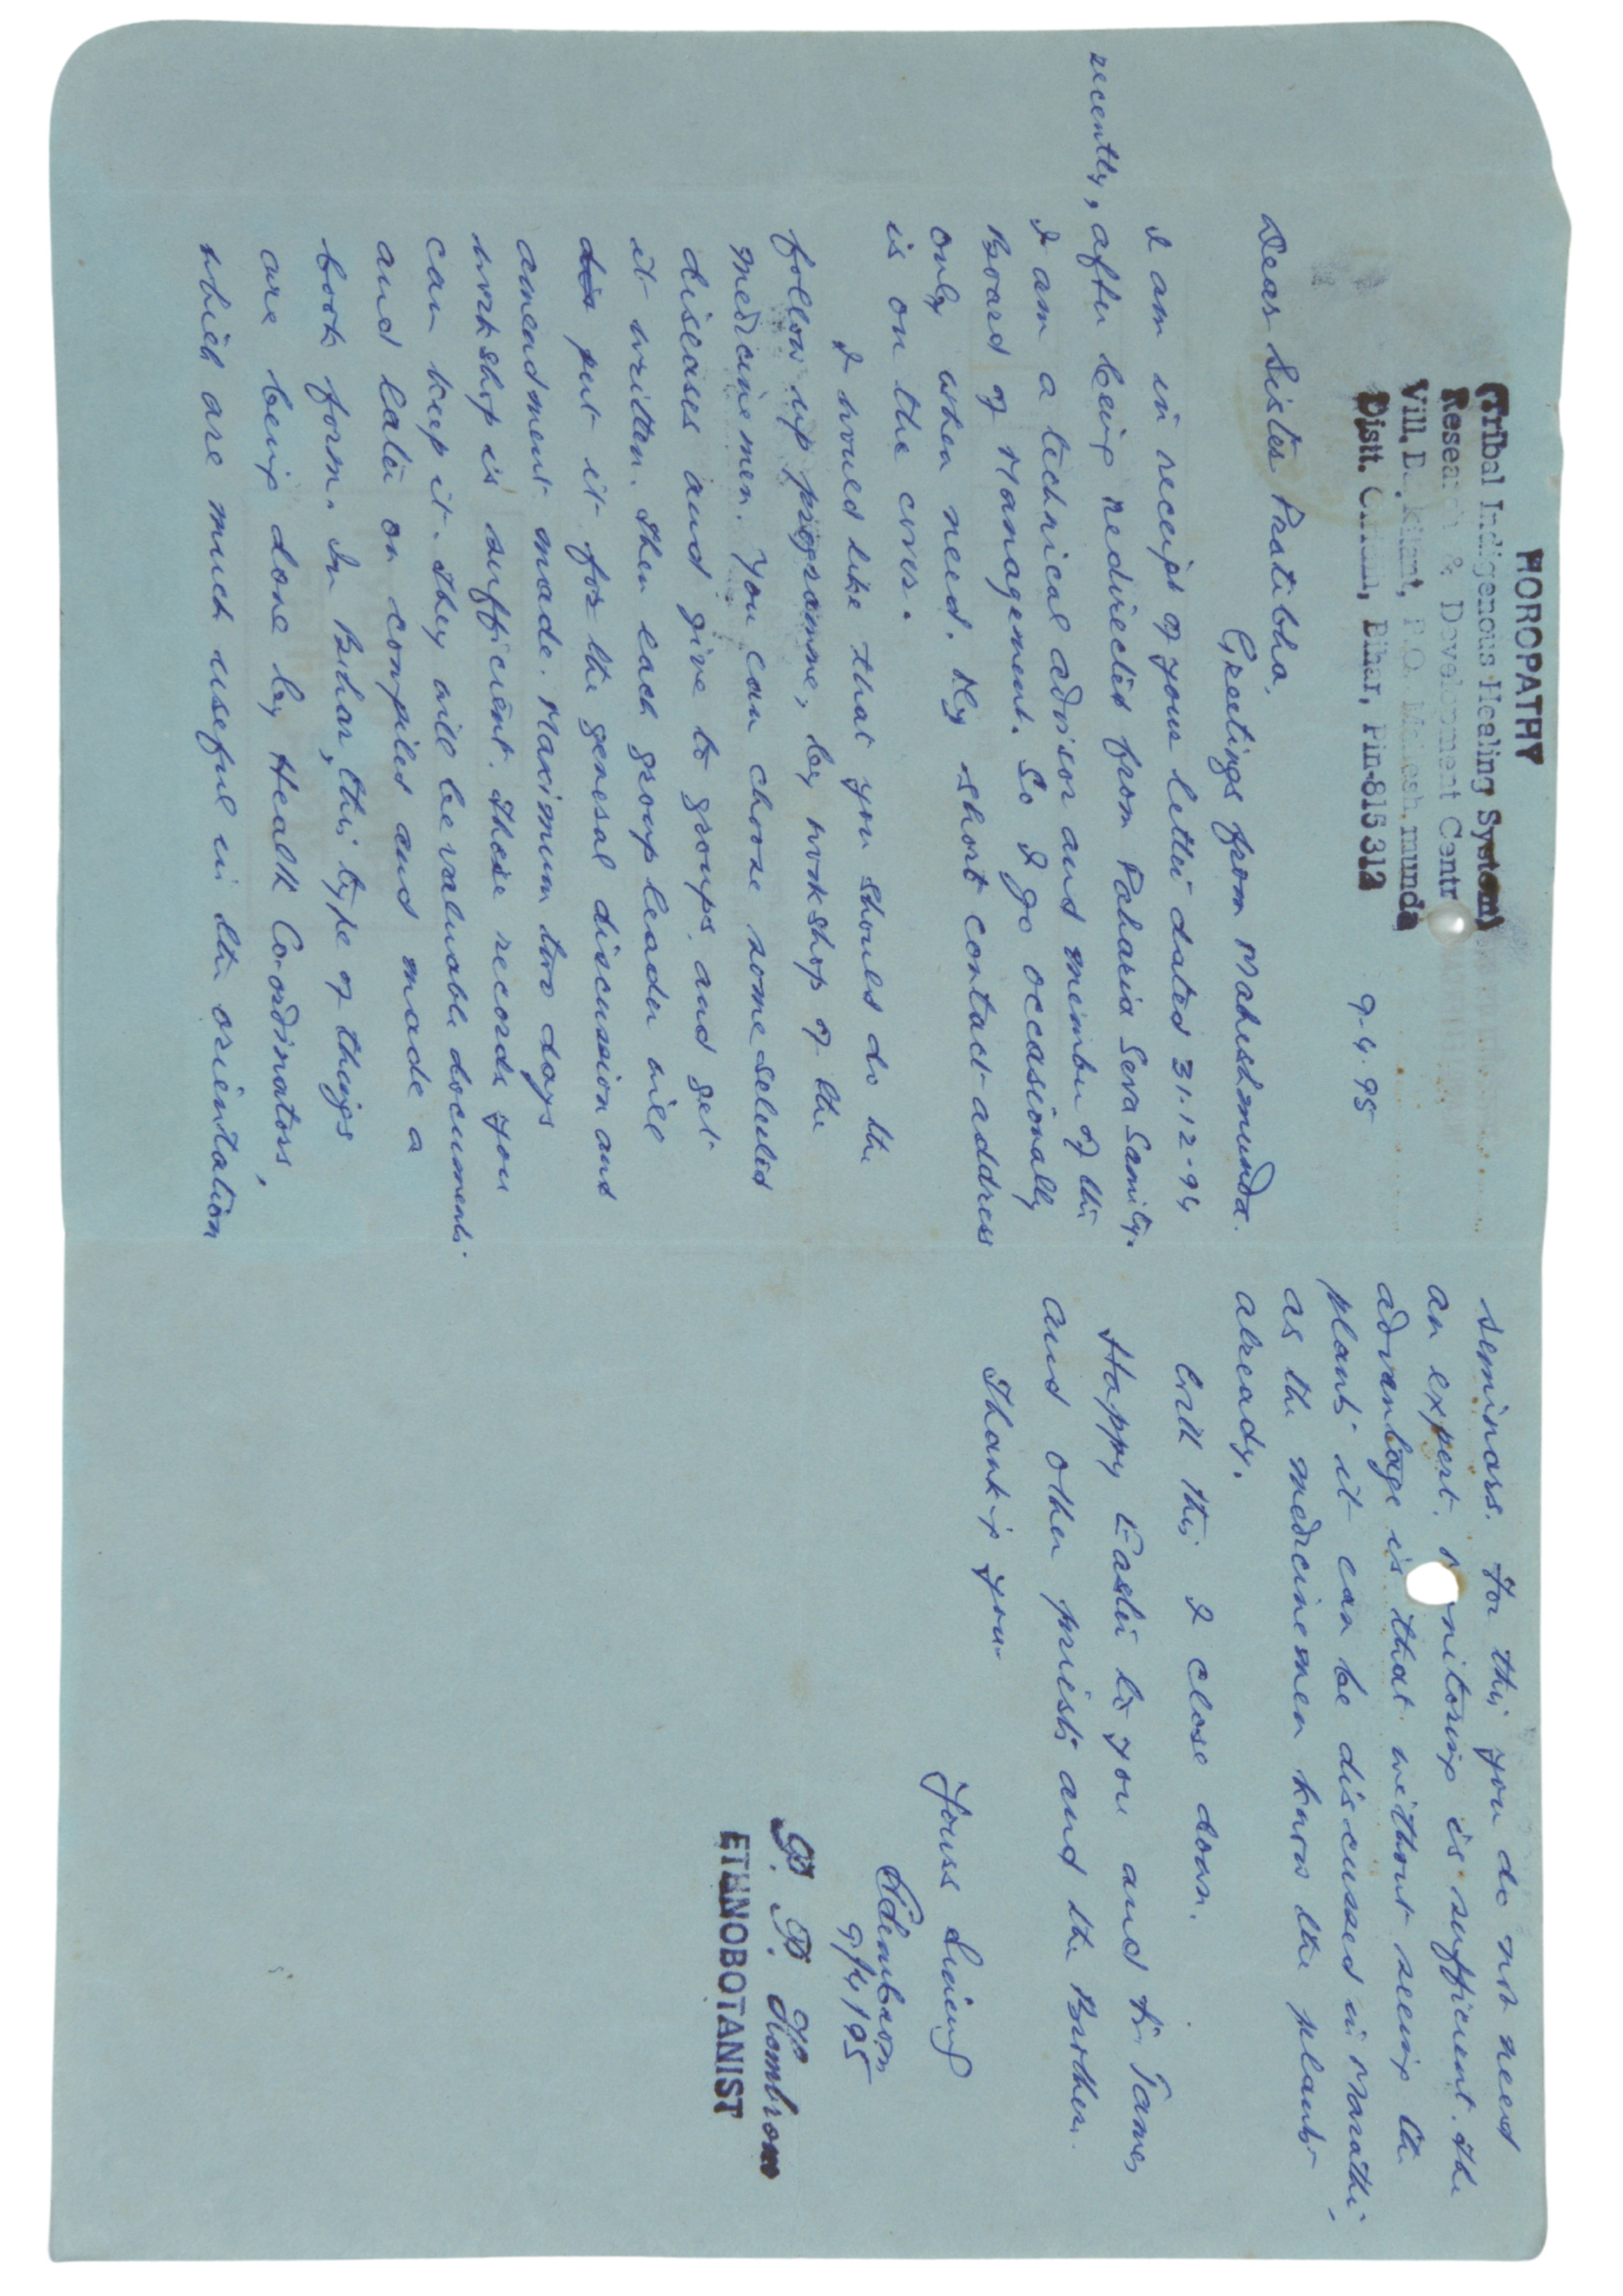 HOROPATHY
(Tribal Indigenous Healing System)
Research & Development Centr
Vill. D. kilant, P.O. Mahesh munda
Distt. Giridih, Bihar, Pin-815 312
9-4.95
Dear Sister Pratibha,
Greetings from Maheshmunda.
I am in receipt of your letter dated 31.12-94
recently, after being redirected from Paharia Seva Samity.
I am a technical advisor and member of the
Board of Management. So I go occasionally
only when need. My short contact-address
is on the cover.
I would like that you should do the
follow up programme, by workshop of the
medicinemen. You can choose some selected
diseases and give to groups, and get
it written. Then each group leader will
put it for the general discussion and
amendment made. Maximum two days
workshop is sufficient. These records you
can keep it. They will be valuable documents
and later on compiled and made a
book form. In Bihar, this type of things
are being done by Health Coordinators,
which are much useful in the orientation
seminars. For this you do not need
an expert. nitoring is sufficient. The
advantage is that without seeing the
plants it can be discussed in Marathi,
as the medicinemen know the plants
already.
With this I close down.
Happy Easter to you and Fr. James
and other priests and the Brothers.
Thanking you-
Yours Sincerely
PPHembrom
9/4/95
P. P. Hembrom
ETHNOBOTANIST